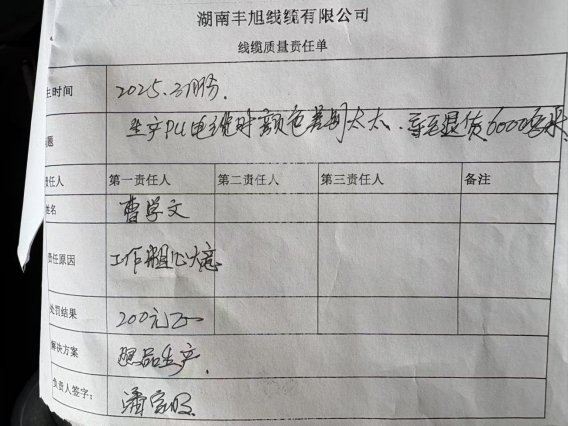 湖南丰旭线缆有限公司
线缆质量责任单
生时间 2025.3月份.
题 生产PU电缆时颜色差别太大.导至退货6000多米
责任人 第一责任人 第二责任人 第三责任人 备注
姓名 曹学文
责任原因 工作粗心大意
处罚结果 200元正
解决方案 照品生产.
负责人签字: